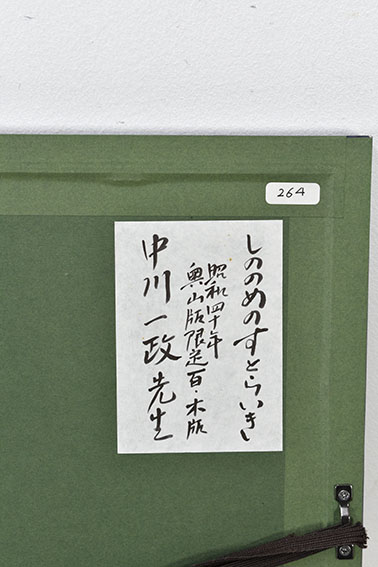 264
しののめのすとらいき
昭和四十年
奥山版限定百・木版
中川一政先生